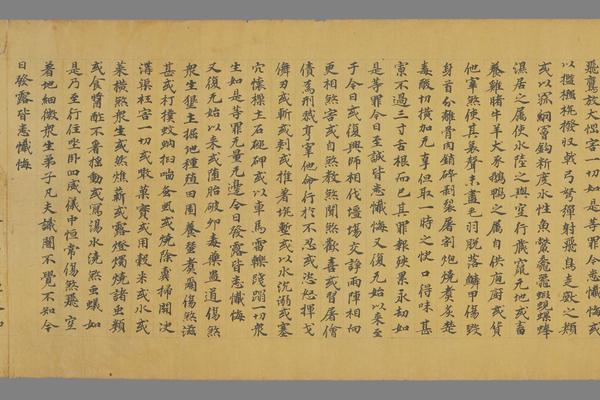 飛鷹放犬損害一切如是等罪今悉懺悔或
以檻弶坑撥杈戟弓弩彈射飛鳥走獸之類
或以罟網罾釣斷度水性魚鱉黿鼉蝦蜆螺蜯
濕居之属使水陸之與空行藏竄无地或畜
養雞猪牛羊犬豕鵝鴨之属自供庖厨或貨
他宰煞使其哀聲未盡毛羽脫落鱗甲傷毀
身首分離骨肉銷碎剝裂屠割炮燒煮炙楚
毒酸切橫加无辜但取一時之快口得味甚
寡不過三寸舌根而已其罪報殃累永劫如
是等罪今日至誠皆悉懺悔又復无始以來至
于今日或復興師相伐壃埸交諍兩陣相向
更相煞害或自煞教煞聞煞歡喜或習屠儈
債為刑戮亨宰他命行於不忍或恣忿揮戈
儛刃或斬或刺或推著坑塹或以水沉溺或塞
穴懷樔土石磓碑或以車馬雷轢踐蹋一切衆
生如是等罪无量无邊今日發露皆悉懺悔
又復无始以來或墮胎破卵毒藥蠱道傷煞
衆生墾土掘地種殖田園養蠶煮繭傷煞滋
甚或打撲蚊蚋掐嚙蚤虱或燒除糞掃開决
溝渠枉害一切或噉菓實或用穀米或水或
菜橫煞衆生或然燋薪或露燈燭燒諸虫類
或食醬酢不看搖動或寫湯水澆煞虫蟻如
是乃至行住坐卧四威儀中恒常傷煞飛空
著地細微衆生弟子凡夫識闇不覺不知今
日發露皆悉懺悔